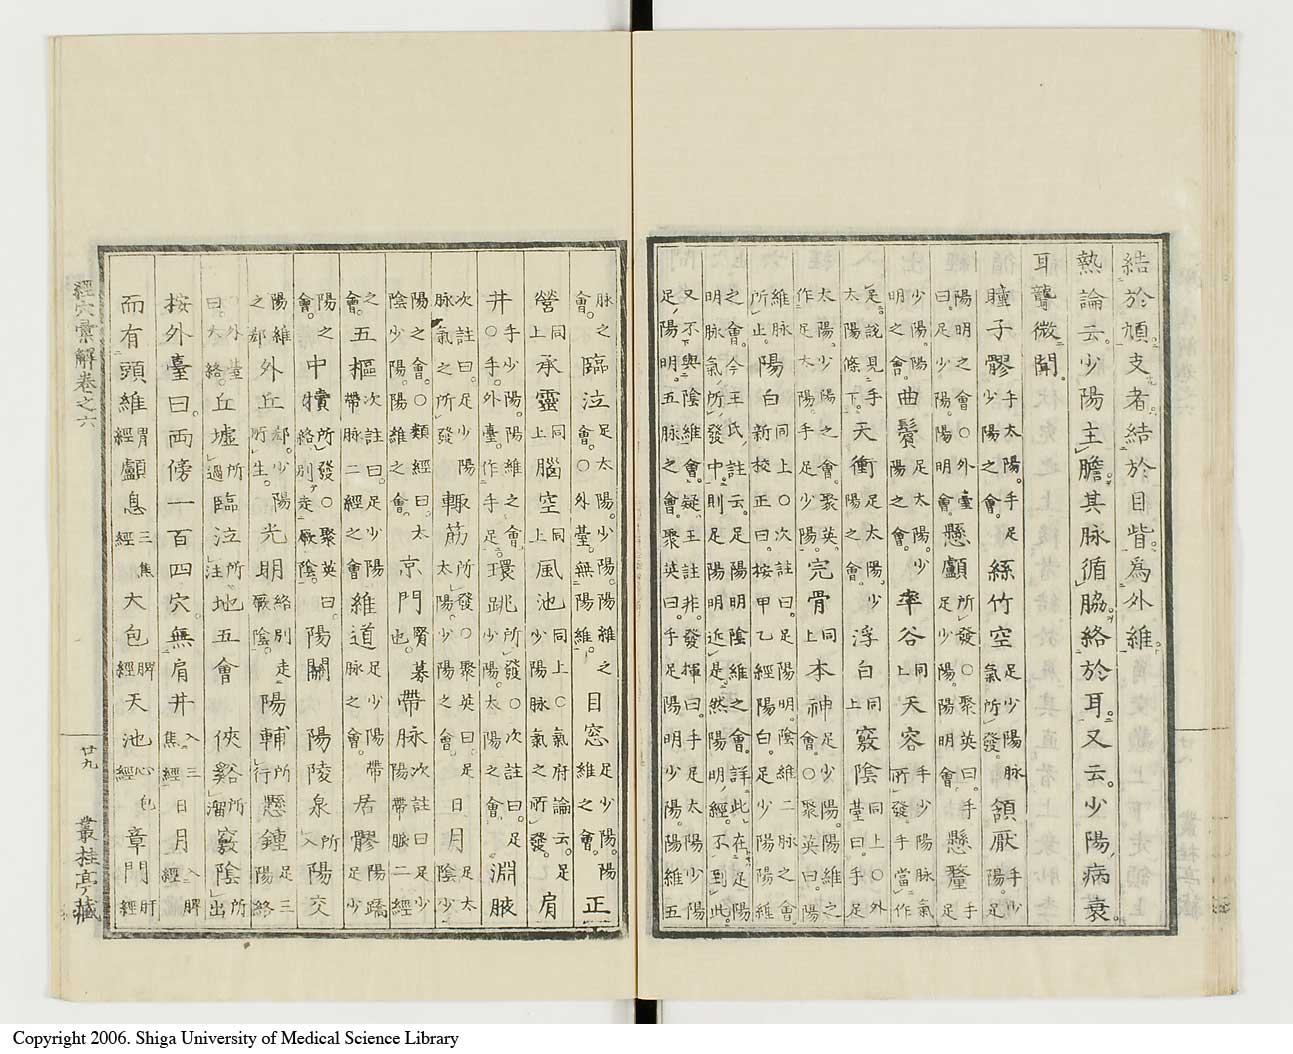 結於頄。支者。結於目眥。爲外維。
熱論云。少陽主膽。其脉循脇。絡於耳。又云。少陽病衰。
耳聾微聞。
瞳子髎手太陽。手足少陽之會。絲竹空足少陽脉氣所發。頷厭手少陽。足
陽明之會。〇外臺曰。足少陽陽明會。懸顱所發〇聚英曰。手足少陽。陽明會。懸釐手足
少陽。陽明之會。曲鬢足太陽。少陽之會。率谷同上天容手少陽脉氣所發手當作
足。說見手太陽條下。天衝足太陽。少陽之會。浮白同上竅陰同上〇外臺曰。手足
太陽。少陽之會。聚英。作足太陽手足少陽。完骨同上本神足少陽陽維之會〇聚英曰。陽
維脉所止。陽白同上〇次註曰。足陽明。陰維二脉之會新校正曰。按甲乙經陽白。足少陽陽維
之會。今王氏。註云。足陽明陰維之會。詳此在足陽明脉氣所發中。則足陽明近是。然陽明經。不到此。
又不與陰維會。疑王註非。發揮曰。手足太陽少陽足陽明。五脉之會。聚英曰。手足陽明少陽。陽維五
脉之會。臨泣足太陽。少陽陽維之會。〇外臺。無陽維。目窓足少陽。陽維之會。正
營同上承靈同上腦空同上風池同上〇氣府論云。足少陽脉氣之所發。肩
井手少陽。陽維之會。〇手。外臺。作手足。環跳所發〇次註曰。足少陽。太陽之會。淵腋
次註曰。足少陽脉氣之所發輒筋所發〇聚英曰。足太陽。少陽之會。日月足太陰少
陽之會。〇類經曰。太陰少陽。陽維之會。京門腎募也。帶脉次註曰足少陽帶脈二經
之會。五樞次註曰。足少陽帶脉二經之會維道足少陽帶脉之會。居髎陽蹻足少
陽之會。中犢所發〇聚英曰。絡別走厥陰。陽關　陽陵泉所入陽交
陽維之郄外丘郄。少陽所生。光明絡別走厥陰。陽輔所行懸鍾足三陽絡
外臺曰。大絡。丘墟所過臨泣所注地五會　俠谿所溜竅陰所出
按外臺曰。両傍一百四穴。無肩井入三焦經日月入脾經
而有頭維胃經顱息三焦經大包脾經天池心包經章門肝經
經穴彙解卷之六　廿九　叢桂亭藏
Copyright 2006. Shiga University of Medical Science Library